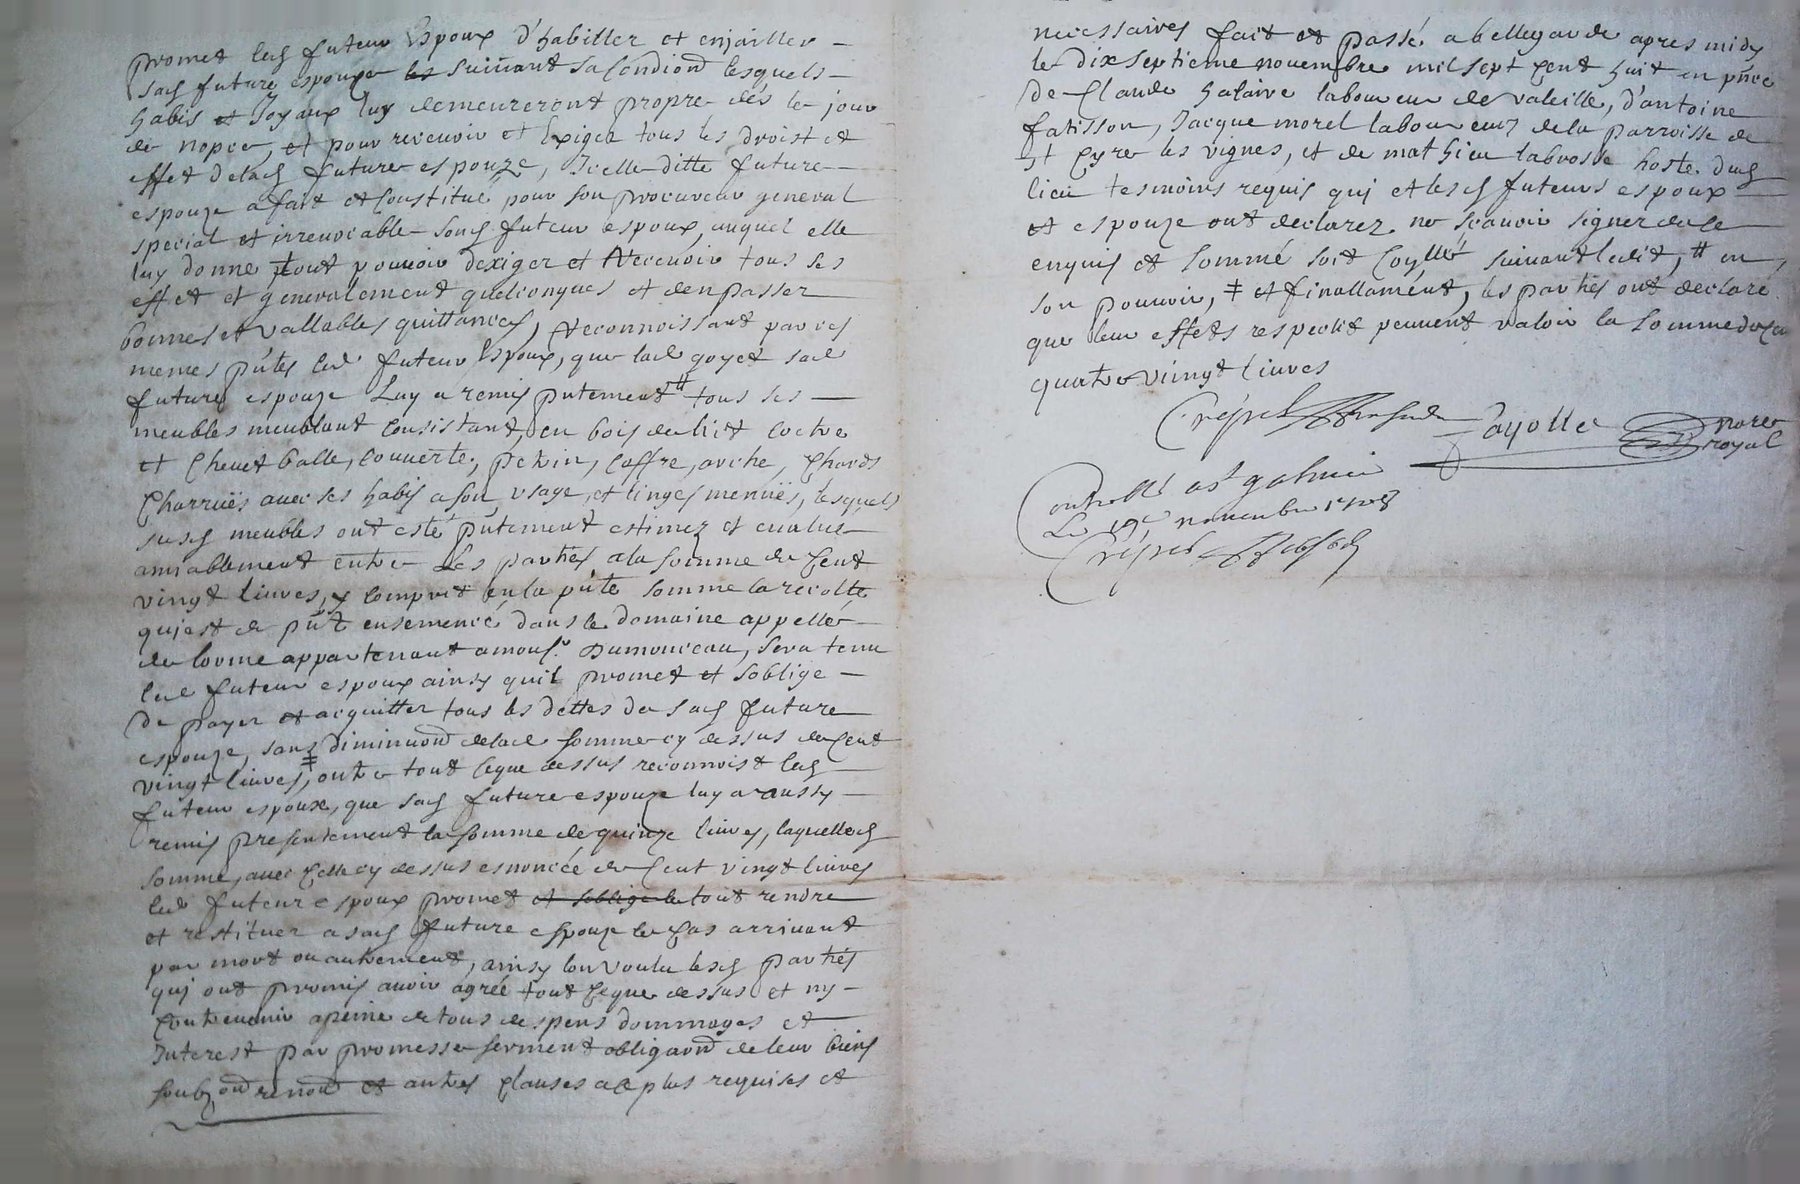 promet led futeur Espoux d'habiller et enjailler
sad future espouze suivant sa condiond lesquels
habis et Joyaux luy demeureront propre dés le jour
de nopce, et pour recevoir et Exiger tous les droist et
effet delad future espouze, Icelle ditte future
espouze a fait et Constitué pour son procureur general
special et irrevocable sond futeur espoux, auquel elle
luy donne tout pouvoir dexiger et Recevoir tous ses
effet et generalement quelconques et den passer
bonnes et vallables quittances, Reconnoissant par ces
memes pntes led futeur Espoux, que lad goyet sad
future espouze Luy a remis pntement tous ses
meubles meublant consistant, en bois de lict coctre
et Chevet balle, couverte, petrin, Coffre, arche, Chards
Charruës avec ses habis a son usage, et linges menuës, lesquels
susd meubles ont esté pntement estimez et evalue
amiablement entre Les parties a la somme de Cent
vingt livres, y comprit en la pnte somme la recolte
qui est de pnt ensemencé dans le domaine appellér
de lorme appartenant a monsr Dumonceau, sera tenu
led futeur espoux ainsy quil promet et soblige
De payer et acquitter tous les dettes de sad future
espouze, sans diminuond delad somme cy dessus de Cent
vingt livres, ‡ outre tout Ceque dessus reconnoist led
futeur espoux, que sad future espouze luy a aussy
remis presentement la somme de quinze livres, laquelled
somme, avec Celle cy dessus enoncée de Cent vingt livres
led futeur espoux promet et soblige de tout rendre
et restituer a sad future espouze le Cas arrivant
par mort ou autrement, ainsy lon voulu lesd parties
qui ont promis avoir agréé tout Ceque dessus et ny
Contrevenir a peine de tous despens dommages et
Interest par promesse serment obligaond de leur biens
soubzond renond et autres Clauses a ce plus requises et
necessaires fait et passé a bellegarde apres midy
le dix septieme novembre mil sept Cent huit en pnce
de Claude halaire laboureur de valeille, d'antoine
fatisson, Jacque morel laboureurs de la parroisse de
St Cyre les vignes, et de mathieu labrosse hoste dud
lieu tesmoins requis qui et lesd futeurs espoux
et espouze ont declarez ne scavoir signer de ce
enquis et sommé soit Coyller suivant ledit, # en
son pouvoir, ‡ et finallament, les parties ont declaré
que leur effets respectit peuvent valoir la somme de
quatre viingt livres
Fayolle nore
royal
Controllé a st galmier
Le 19e novembre 1708